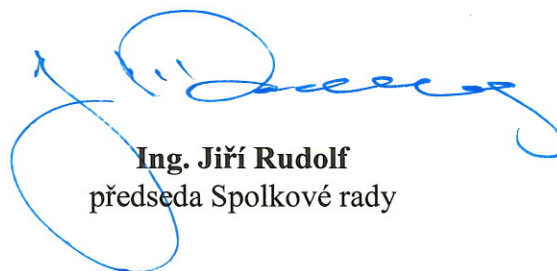 Ing. Jiří Rudolf
předseda Spolkové rady